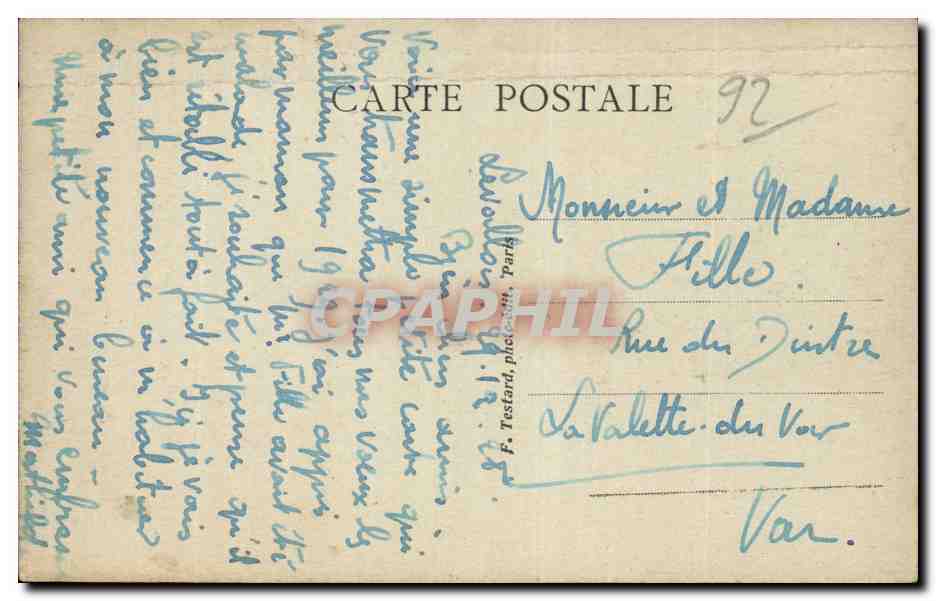 CARTE POSTALE
92
Levallois 29.12.48
Bien chers amis,
Voici une simple petite carte qui
vous transmettra tous nos voeux les
meilleurs pour 1949. J'ai appris
par maman que Mr Fille avait été
malade. J'souhaite et pense qu'il
est rétabli tout à fait. Ici je vais
bien et commence à m'habituer
à mon nouveau bureau -
Une petite amie qui vous embrasse
Mathilde
Monsieur et Madame
Fille
Rue du
La Valette-du-Var
Var.
F. Testard, photo-édit., Paris
CPAPHIL